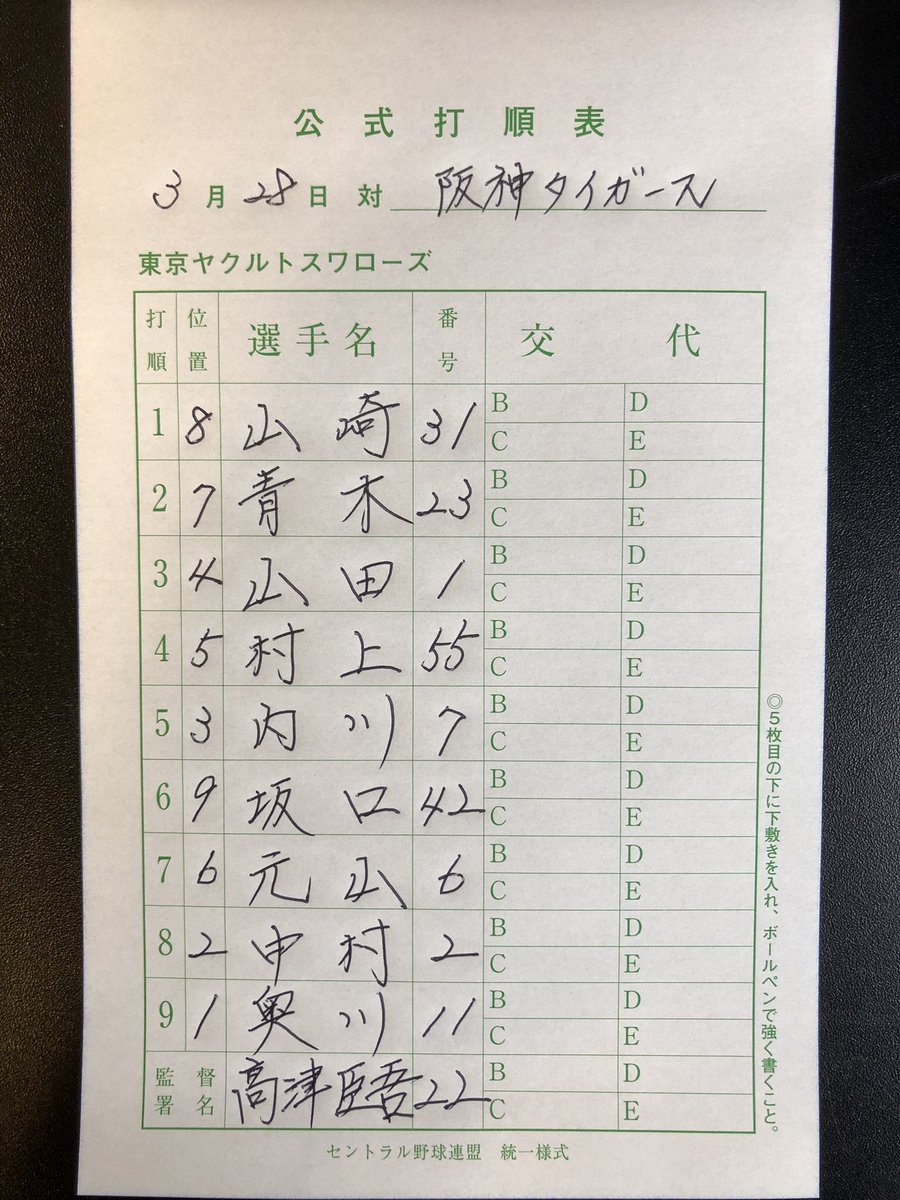 公式打順表
3月28日 対 阪神タイガース
東京ヤクルトスワローズ
打順 位置 選手名 番号 交代
1 8 山崎 31 B D
C E
2 7 青木 23 B D
C E
3 4 山田 1 B D
C E
4 5 村上 55 B D
C E
5 3 内川 7 B D
C E
6 9 坂口 42 B D
C E
7 6 元山 6 B D
C E
8 2 中村 2 B D
C E
9 1 奥川 11 B D
C E
監督署名 高津臣吾 22 B D
C E
◎5枚目の下に下敷きを入れ、ボールペンで強く書くこと。
セントラル野球連盟 統一様式